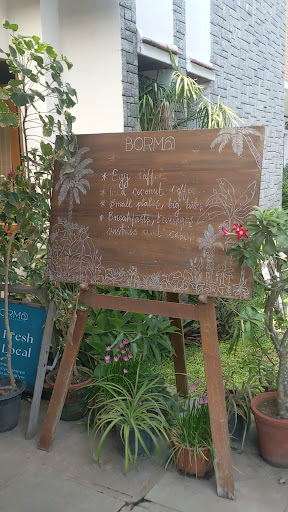 BORMA
* Egg coffee
coconut coffee.
* Small plates, big bites
* Breakfasts, beverages
and
ORMA
Fresh
Local